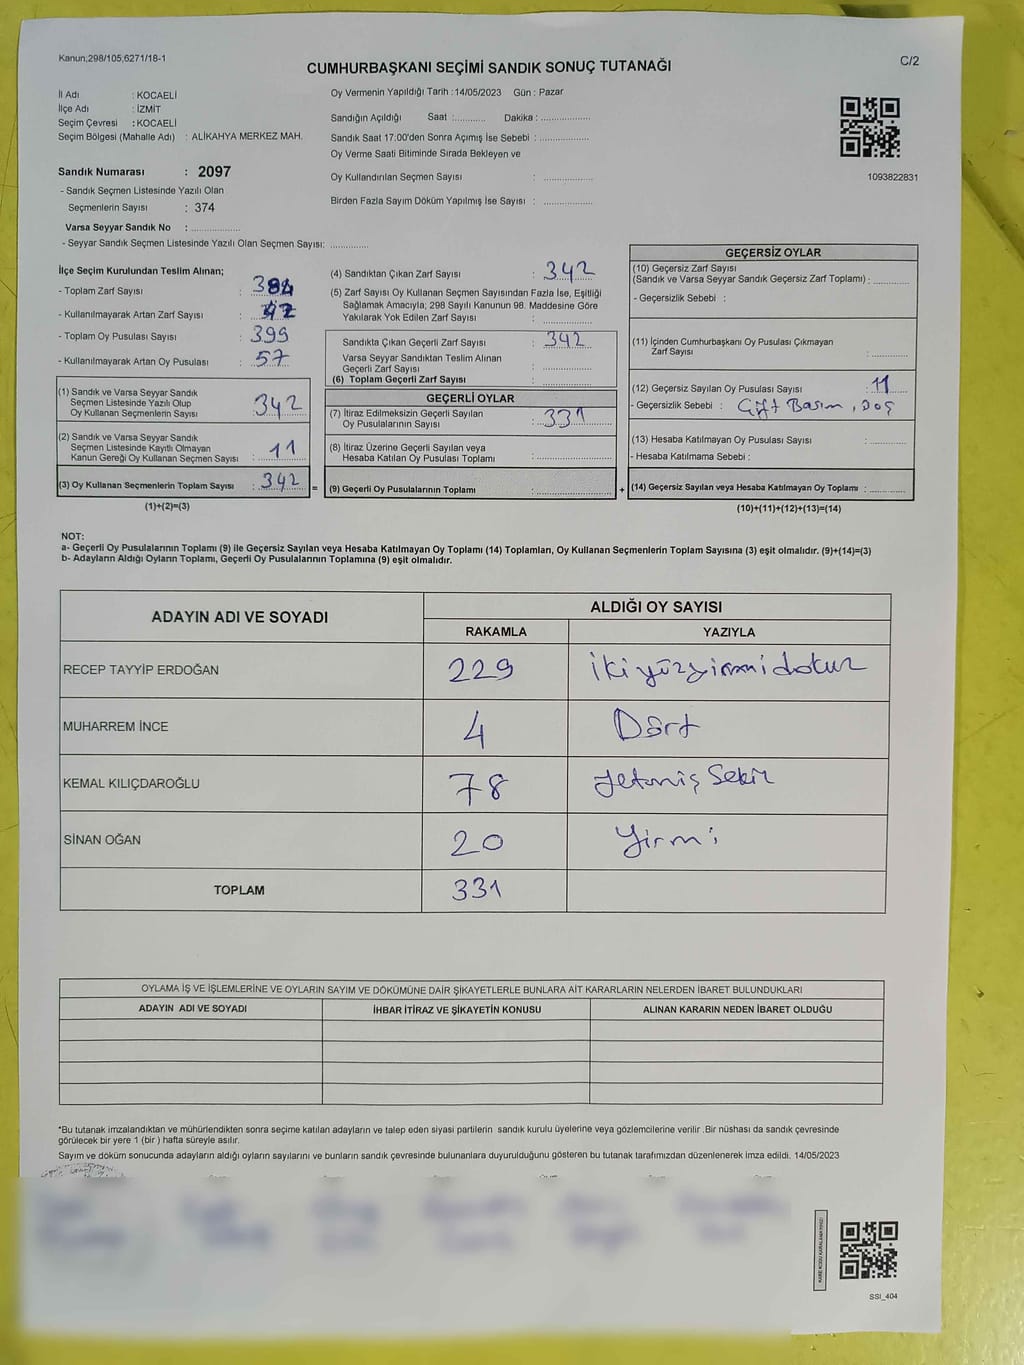 Kanun;298/105,6271/18-1
C/2
CUMHURBAŞKANI SEÇİMİ SANDIK SONUÇ TUTANAĞI
İl Adı : KOCAELİ
İlçe Adı : İZMİT
Seçim Çevresi : KOCAELİ
Seçim Bölgesi (Mahalle Adı) : ALİKAHYA MERKEZ MAH.
Sandık Numarası : 2097
- Sandık Seçmen Listesinde Yazılı Olan
Seçmenlerin Sayısı : 374
Varsa Seyyar Sandık No : ..............
- Seyyar Sandık Seçmen Listesinde Yazılı Olan Seçmen Sayısı: ...........
Oy Vermenin Yapıldığı Tarih :14/05/2023 Gün : Pazar
Sandığın Açıldığı Saat :.......... Dakika : ..............
Sandık Saat 17:00'den Sonra Açımış İse Sebebi : ..............
Oy Verme Saati Bitiminde Sırada Bekleyen ve
Oy Kullandırılan Seçmen Sayısı : ..............
Birden Fazla Sayım Döküm Yapılmış İse Sayısı : ..............
1093822831
İlçe Seçim Kurulundan Teslim Alınan;
- Toplam Zarf Sayısı : 384
- Kullanılmayarak Artan Zarf Sayısı : 42
- Toplam Oy Pusulası Sayısı : 399
- Kullanılmayarak Artan Oy Pusulası : 57
(1) Sandık ve Varsa Seyyar Sandık
Seçmen Listesinde Yazılı Olup
Oy Kullanan Seçmenlerin Sayısı : 342
(2) Sandık ve Varsa Seyyar Sandık
Seçmen Listesinde Kayıtlı Olmayan
Kanun Gereği Oy Kullanan Seçmen Sayısı : 11
(3) Oy Kullanan Seçmenlerin Toplam Sayısı : 342 =
(1)+(2)=(3)
(4) Sandıktan Çıkan Zarf Sayısı : 342
(5) Zarf Sayısı Oy Kullanan Seçmen Sayısından Fazla İse, Eşitliği
Sağlamak Amacıyla; 298 Sayılı Kanunun 98. Maddesine Göre
Yakılarak Yok Edilen Zarf Sayısı : ..............
Sandıkta Çıkan Geçerli Zarf Sayısı : 342
Varsa Seyyar Sandıktan Teslim Alınan
Geçerli Zarf Sayısı : ..............
(6) Toplam Geçerli Zarf Sayısı : ..............
GEÇERLİ OYLAR
(7) İtiraz Edilmeksizin Geçerli Sayılan
Oy Pusulalarının Sayısı : 331
(8) İtiraz Üzerine Geçerli Sayılan veya
Hesaba Katılan Oy Pusulası Toplamı : ..............
(9) Geçerli Oy Pusulalarının Toplamı : .............. +
GEÇERSİZ OYLAR
(10) Geçersiz Zarf Sayısı
(Sandık ve Varsa Seyyar Sandık Geçersiz Zarf Toplamı) : ..........
- Geçersizlik Sebebi :
(11) İçinden Cumhurbaşkanı Oy Pusulası Çıkmayan
Zarf Sayısı : ..........
(12) Geçersiz Sayılan Oy Pusulası Sayısı : 11
- Geçersizlik Sebebi : Çift Basım,
(13) Hesaba Katılmayan Oy Pusulası Sayısı : ..........
- Hesaba Katılmama Sebebi :
(14) Geçersiz Sayılan veya Hesaba Katılmayan Oy Toplamı : ..........
(10)+(11)+(12)+(13)=(14)
NOT:
a- Geçerli Oy Pusulalarının Toplamı (9) ile Geçersiz Sayılan veya Hesaba Katılmayan Oy Toplamı (14) Toplamları, Oy Kullanan Seçmenlerin Toplam Sayısına (3) eşit olmalıdır. (9)+(14)=(3)
b- Adayların Aldığı Oyların Toplamı, Geçerli Oy Pusulalarının Toplamına (9) eşit olmalıdır.
ADAYIN ADI VE SOYADI
ALDIĞI OY SAYISI
RAKAMLA YAZIYLA
RECEP TAYYİP ERDOĞAN 229 ikiyüzyirmidokuz
MUHARREM İNCE 4 Dört
KEMAL KILIÇDAROĞLU 78 Yetmiş Sekiz
SİNAN OĞAN 20 Yirmi
TOPLAM 331
OYLAMA İŞ VE İŞLEMLERİNE VE OYLARIN SAYIM VE DÖKÜMÜNE DAİR ŞİKAYETLERLE BUNLARA AİT KARARLARIN NELERDEN İBARET BULUNDUKLARI
ADAYIN ADI VE SOYADI İHBAR İTİRAZ VE ŞİKAYETİN KONUSU ALINAN KARARIN NEDEN İBARET OLDUĞU
*Bu tutanak imzalandıktan ve mühürlendikten sonra seçime katılan adayların ve talep eden siyasi partilerin sandık kurulu üyelerine veya gözlemcilerine verilir .Bir nüshası da sandık çevresinde
görülecek bir yere 1 (bir ) hafta süreyle asılır.
Sayım ve döküm sonucunda adayların aldığı oyların sayılarını ve bunların sandık çevresinde bulunanlara duyurulduğunu gösteren bu tutanak tarafımızdan düzenlenerek imza edildi. 14/05/2023
SSI_404